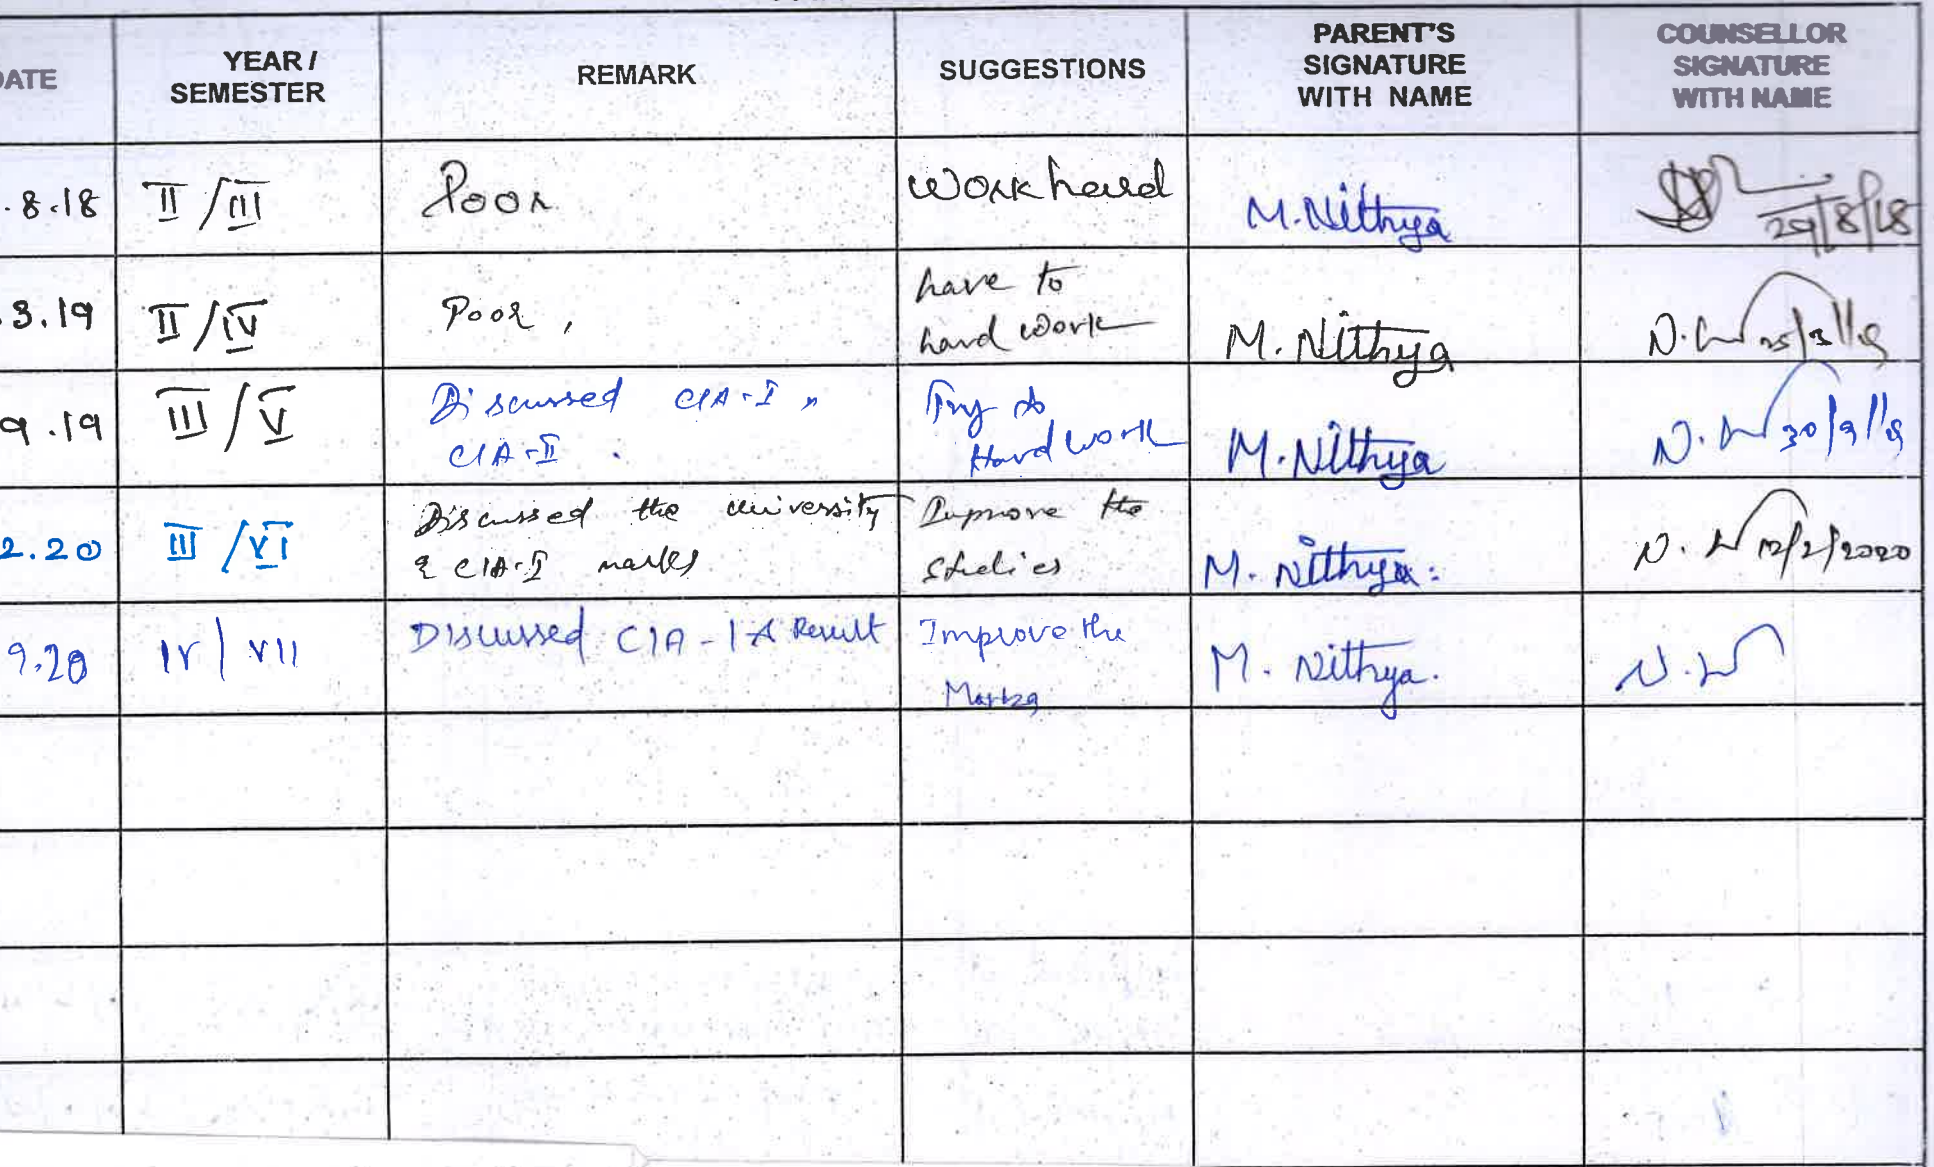 DATE YEAR / SEMESTER REMARK SUGGESTIONS PARENT'S SIGNATURE WITH NAME COUNSELLOR SIGNATURE WITH NAME
.8.18 II / III Poor Work hard M. Nithya 29/8/18
.3.19 II / IV Poor, have to hard work M. Nithya N. 25/3/19
9.19 III / V Discussed CIA-I, CIA-II. Try to Hard work M. Nithya N. 30/9/19
2.20 III / VI Discussed the university & CIA-I marks Improve the studies M. Nithya. N. 12/2/2020
9.20 IV / VII Discussed CIA-I A Result Improve the Marks M. Nithya. N.